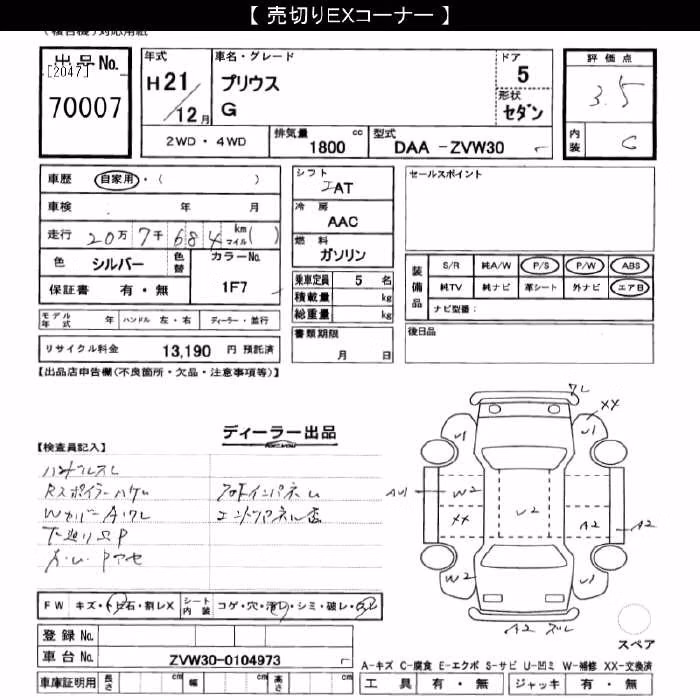 【 売切りEXコーナー 】
出品No.
[2047]
70007
年式
H21
12月
車名・グレード
プリウス
G
ドア
5
形状
セダン
評価点
3.5
内装
C
2WD・4WD
排気量 cc
1800
型式
DAA -ZVW30
車歴 自家用・( )
車検 年 月
走行 20万7千684 km マイル( )
色 シルバー 色替 カラーNo. 1F7
保証書 有・無
シフト
AT
冷房
AAC
燃料
ガソリン
乗車定員 5 名
積載量 kg
総重量 kg
セールスポイント
装備品
S/R 純A/W P/S P/W ABS
純TV 純ナビ 革シート 外ナビ エアB
ナビ型番:
モデル年式 年 ハンドル 左・右 ディーラー・並行
書類期限
月 日
後日品
リサイクル料金 13,190 円 預託済
【出品店申告欄(不良箇所・欠品・注意事項等)】
ディーラー出品
【検査員記入】
Rスポイラーハゲ
WカバーAワレ
下廻りSP
ワレ
XX
U1
U1
W2
XX
U2
A2
A2
W2
U1
A2
FW キズ・トビ石・割レX シート内装 コゲ・穴・汚レ・シミ・破レ・スレ
登録 No.
車台 No. ZVW30-0104973
車庫証明用 長さ cm 幅 cm 高さ cm
スペア
A-キズ C-腐食 E-エクボ S-サビ U-凹ミ W-補修 XX-交換済
工具 有・無 ジャッキ 有・無